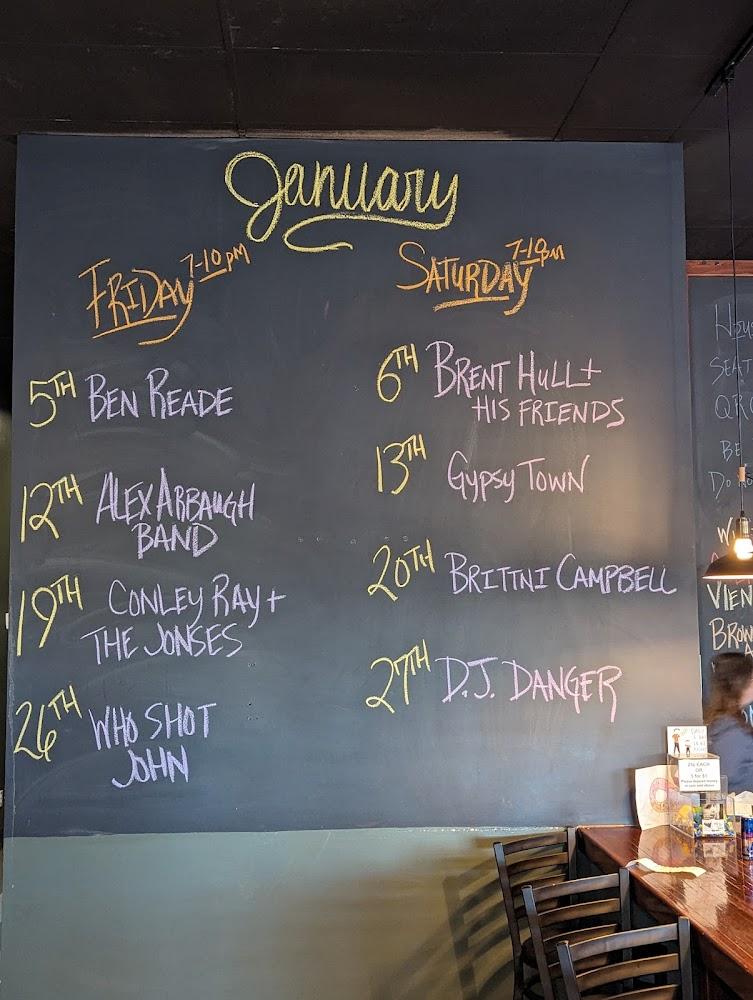 January
FRIDAY 7-10 pm
5TH BEN READE
12TH ALEX ARBAUGH
BAND
19TH CONLEY RAY +
THE JONSES
26TH WHO SHOT
JOHN
SATURDAY 7-10 PM
6TH BRENT HULL +
HIS FRIENDS
13TH GYPSY TOWN
20TH BRITTNI CAMPBELL
27TH D.J. DANGER
SEAT
BE
VIEN
BROW
25¢ EACH
OR
5 for $1